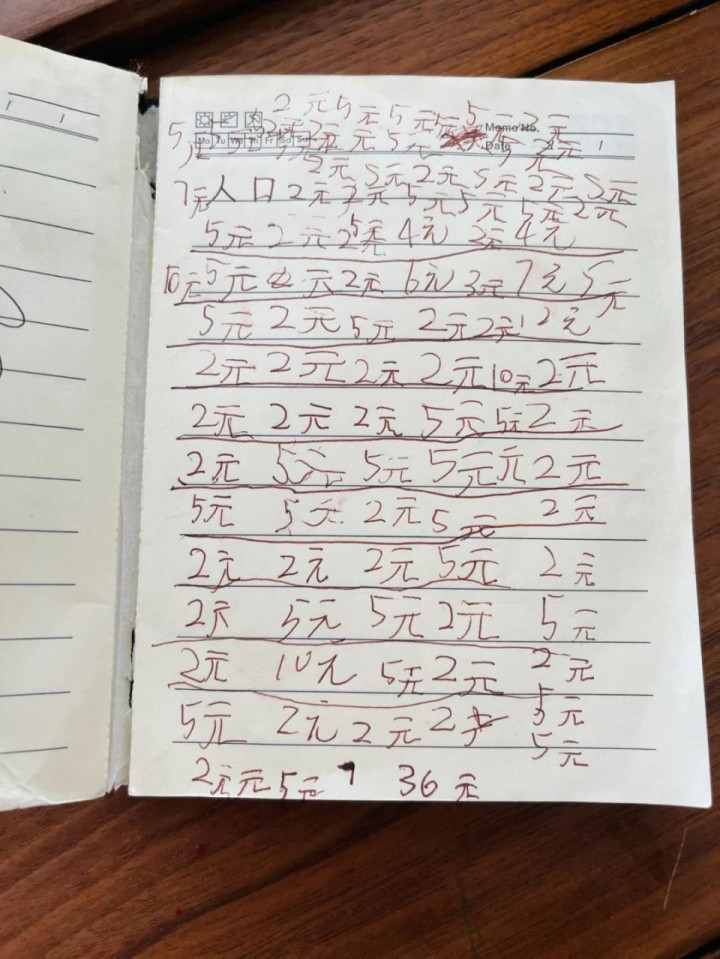 2元 5元 5元 5元 2元
Memo No.
Mo Tu We Th Fr Sa Su
Date
2元 5元 2元 5元 2元 5元
7元 人口 2元 2元 5元 5元 5元 2元
5元 2元 2元 4元 2元 4元
10元 5元 元 2元 6元 3元 7元 5元
5元 2元 5元 2元 2元 12元
2元 2元 2元 2元 10元 2元
2元 2元 2元 5元 5元 2元
2元 5元 5元 5元 元 2元
5元 5元 2元 5元 2元
2元 2元 2元 5元 2元
2元 5元 5元 2元 5元
2元 10元 5元 2元 2元
5元
5元 2元 2元 2
5元
2元 元 5元 36元